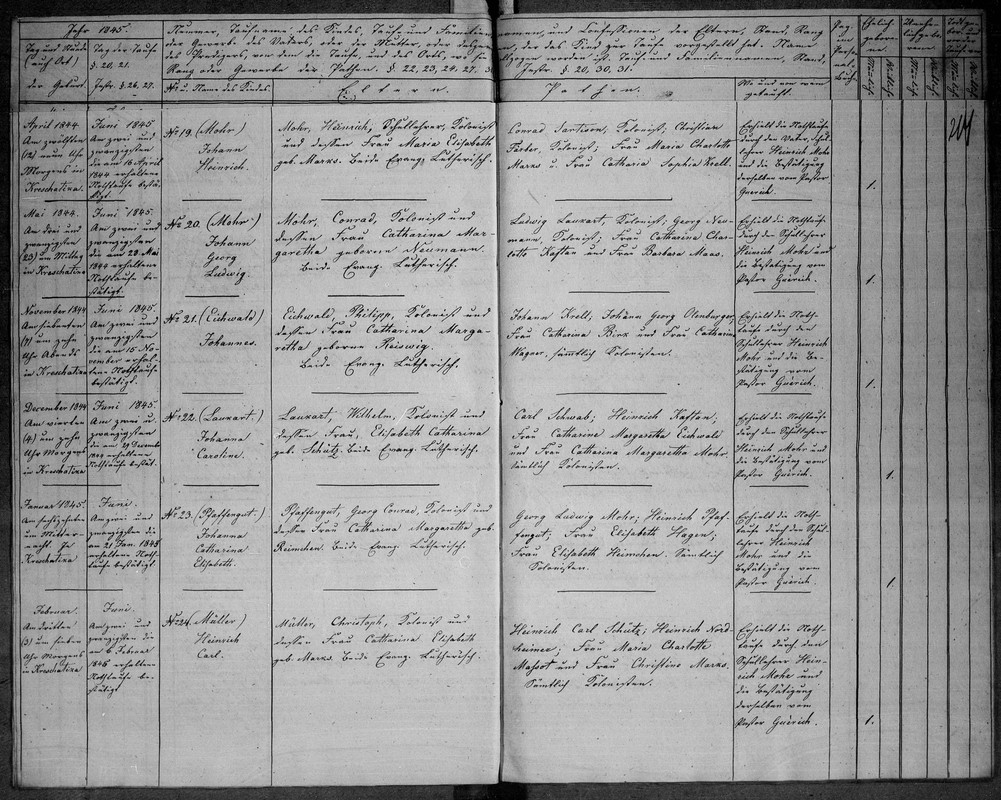 Jahr 1845.
Tag und Stunde
(auch Ort)
der Geburt.
Tag der Taufe
§. 20, 21.
Instr. §. 26. 27.
Nummer, Taufname des Kindes, Tauf und Familiennamen, und Confessionen der Eltern, Stand, Rang
oder Gewerbe des Vaters, oder der Mutter, oder
der das Kind zur Taufe vorgestellt hat. Name
des Predigers, von dem die Taufe, und des Orts, wo sie
vollzogen worden ist. Tauf und Familiennamen, Stand,
Rang oder Gewerbe der Pathen. §. 22, 23, 24. 27.
Instr. §. 20, 30, 31.
No u. Name des Kindes.
Eltern.
Pathen.
Wo und von wem
getauft.
April 1844.
Am zwölften
(12) neun Uhr
Morgens in
Kreschatina.
Juni 1845
Am zwei und
zwanzigsten
die am 16 April
1844 erhaltene
Nothtaufe bestä-
tigt.
No 19. (Mohr)
Johann
Heinrich.
Mohr, Heinrich, Schullehrer, Kolonist
und dessen Frau Maria Elisabeth
geb. Marks. Beide Evang. Lutherisch.
Conrad Sartison, Kolonist; Christian
Färber, Kolonist; Frau Maria Charlotte
Marks u. Frau Catharina Sophia Krell.
Erhielt die Nothtaufe
durch den Vater, Schul-
lehrer Heinrich Mohr
und die Bestätigung
derselben vom Pastor
Guerich.
1.
Mai 1844.
Am drei und
zwanzigsten
(23) um Mittag
in Kreschatina
Juni 1845
Am zwei und
zwanzigsten
die am 28 Mai
1844 erhaltene
Nothtaufe be-
stätigt.
No 20. (Mohr)
Johann
Georg
Ludwig.
Mohr, Conrad, Kolonist und
dessen Frau Catharina Mar-
garetha geborene Neumann.
Beide Evang. Lutherisch.
Ludwig Laukart, Kolonist; Georg Neu-
mann, Kolonist; Frau Catharina Char-
lotte Kaftan und Frau Barbara Maas.
Erhielt die Nothtaufe
durch den Schullehrer
Heinrich Mohr und
die Bestätigung vom
Pastor Guerich.
1.
November 1844
Am siebenten
(7) um zehn
Uhr Abends
in Kreschatina
Juni 1845
Am zwei und
zwanzigsten
die am 15 No-
vember erhal-
tene Nothtaufe
bestätigt.
No 21. (Eichwald)
Johannes.
Eichwald, Philipp, Kolonist und
dessen Frau Catharina Marga-
retha geborene Reiswig.
Beide Evang. Lutherisch.
Johann Krell, Johann Georg Olenburger,
Frau Catharina Birk und Frau Catharina
Wagner, sämtlich Kolonisten.
Erhielt die Noth-
taufe durch den
Schullehrer Heinrich
Mohr und die Be-
stätigung vom
Pastor Guerich.
1.
December 1844
Am vierten
(4) um zehn
Uhr Morgens
in Kreschatina
Juni 1845
Am zwei u.
zwanzigsten
die am 29 December
1844 erhaltene
Nothtaufe bestät.
No 22. (Laukart)
Johanna
Caroline.
Laukart, Wilhelm, Kolonist und
dessen Frau, Elisabeth Catharina
geb. Schütz. Beide Evang. Lutherisch.
Carl Schwab; Heinrich Kaftan,
Frau Catharine Margaretha Eichwald
und Frau Catharina Margaretha Mohr.
sämtlich Kolonisten.
Erhielt die Nothtaufe
durch den Schullehrer
Heinrich Mohr und
die Bestätigung vom
Pastor Guerich.
1.
Januar 1845.
um Mitter-
nacht. In
Kreschatina
Juni.
Am zwei und
zwanzigsten die
am 21 Jan. 1845
erhaltene Noth-
taufe bestätigt.
No 23. (Pfaffengut.)
Johanna
Catharina
Elisabeth.
Pfaffengut, Georg Conrad, Kolonist und
dessen Frau Catharina Margaretha geb.
Reimchen. Beide Evang. Lutherisch.
Georg Ludwig Mohr; Heinrich Pfaf-
fengut; Frau Elisabeth Hagen;
Frau Elisabeth Heimchen. Sämtlich
Kolonisten.
Erhielt die Noth-
taufe durch den Schul-
lehrer Heinrich
Mohr und die
Bestätigung vom
Pastor Guerich.
1.
Februar.
Am dritten
(3) um sieben
Uhr Morgens
in Kreschatina
Juni.
Am zwei und
zwanzigsten die
am 6 Februar
1845 erhaltene
Nothtaufe be-
stätigt
No 24. (Müller)
Heinrich
Carl.
Müller, Christoph, Kolonist und
dessen Frau Catharina Elisabeth
geb. Marks. Beide Evang. Lutherisch.
Heinrich Carl Schütz; Heinrich Nord-
heimer; Frau Maria Charlotte
Massot und Frau Christine Marks.
Sämtlich Kolonisten.
Erhielt die Noth-
taufe durch den
Schullehrer Hein-
rich Mohr und
die Bestätigung
derselben vom
Pastor Guerich.
1.